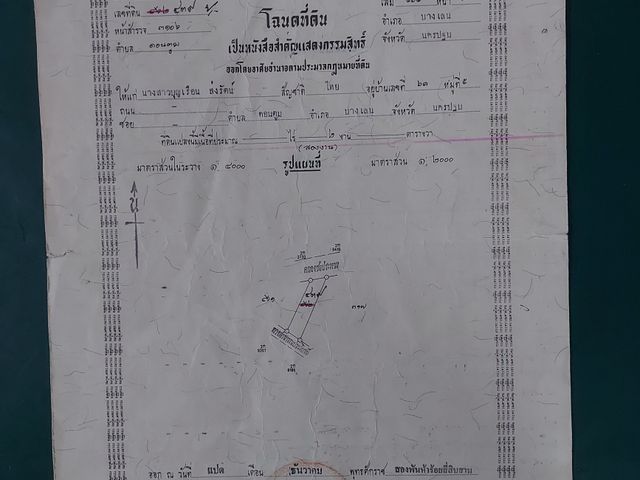 เลขที่ดิน ๔๓๙
หน้าสำรวจ ๓๑๐๖
ตำบล ดอนตูม
โฉนดที่ดิน
เป็นหนังสือสำคัญแสดงกรรมสิทธิ์
ออกโดยอาศัยอำนาจตามประมวลกฎหมายที่ดิน
เล่ม หน้า
อำเภอ บางเลน
จังหวัด นครปฐม
ให้แก่ นางสาวบุญเรือน ส่งรัตน์ สัญชาติ ไทย อยู่บ้านเลขที่ ๒๓ หมู่ที่ ๕
ถนน – ตำบล ดอนตูม อำเภอ บางเลน จังหวัด นครปฐม
ซอย –
ที่ดินแปลงนี้มีเนื้อที่ประมาณ – ไร่ ๒ งาน – ตารางวา
(สองงาน)
มาตราส่วนในระวาง ๑: ๔๐๐๐
รูปแผนที่
มาตราส่วน ๑: ๒๐๐๐
น
คลองชลประทาน
๓๑๗
ออก ณ วันที่ แปด เดือน ธันวาคม พุทธศักราช สองพันห้าร้อยยี่สิบสาม